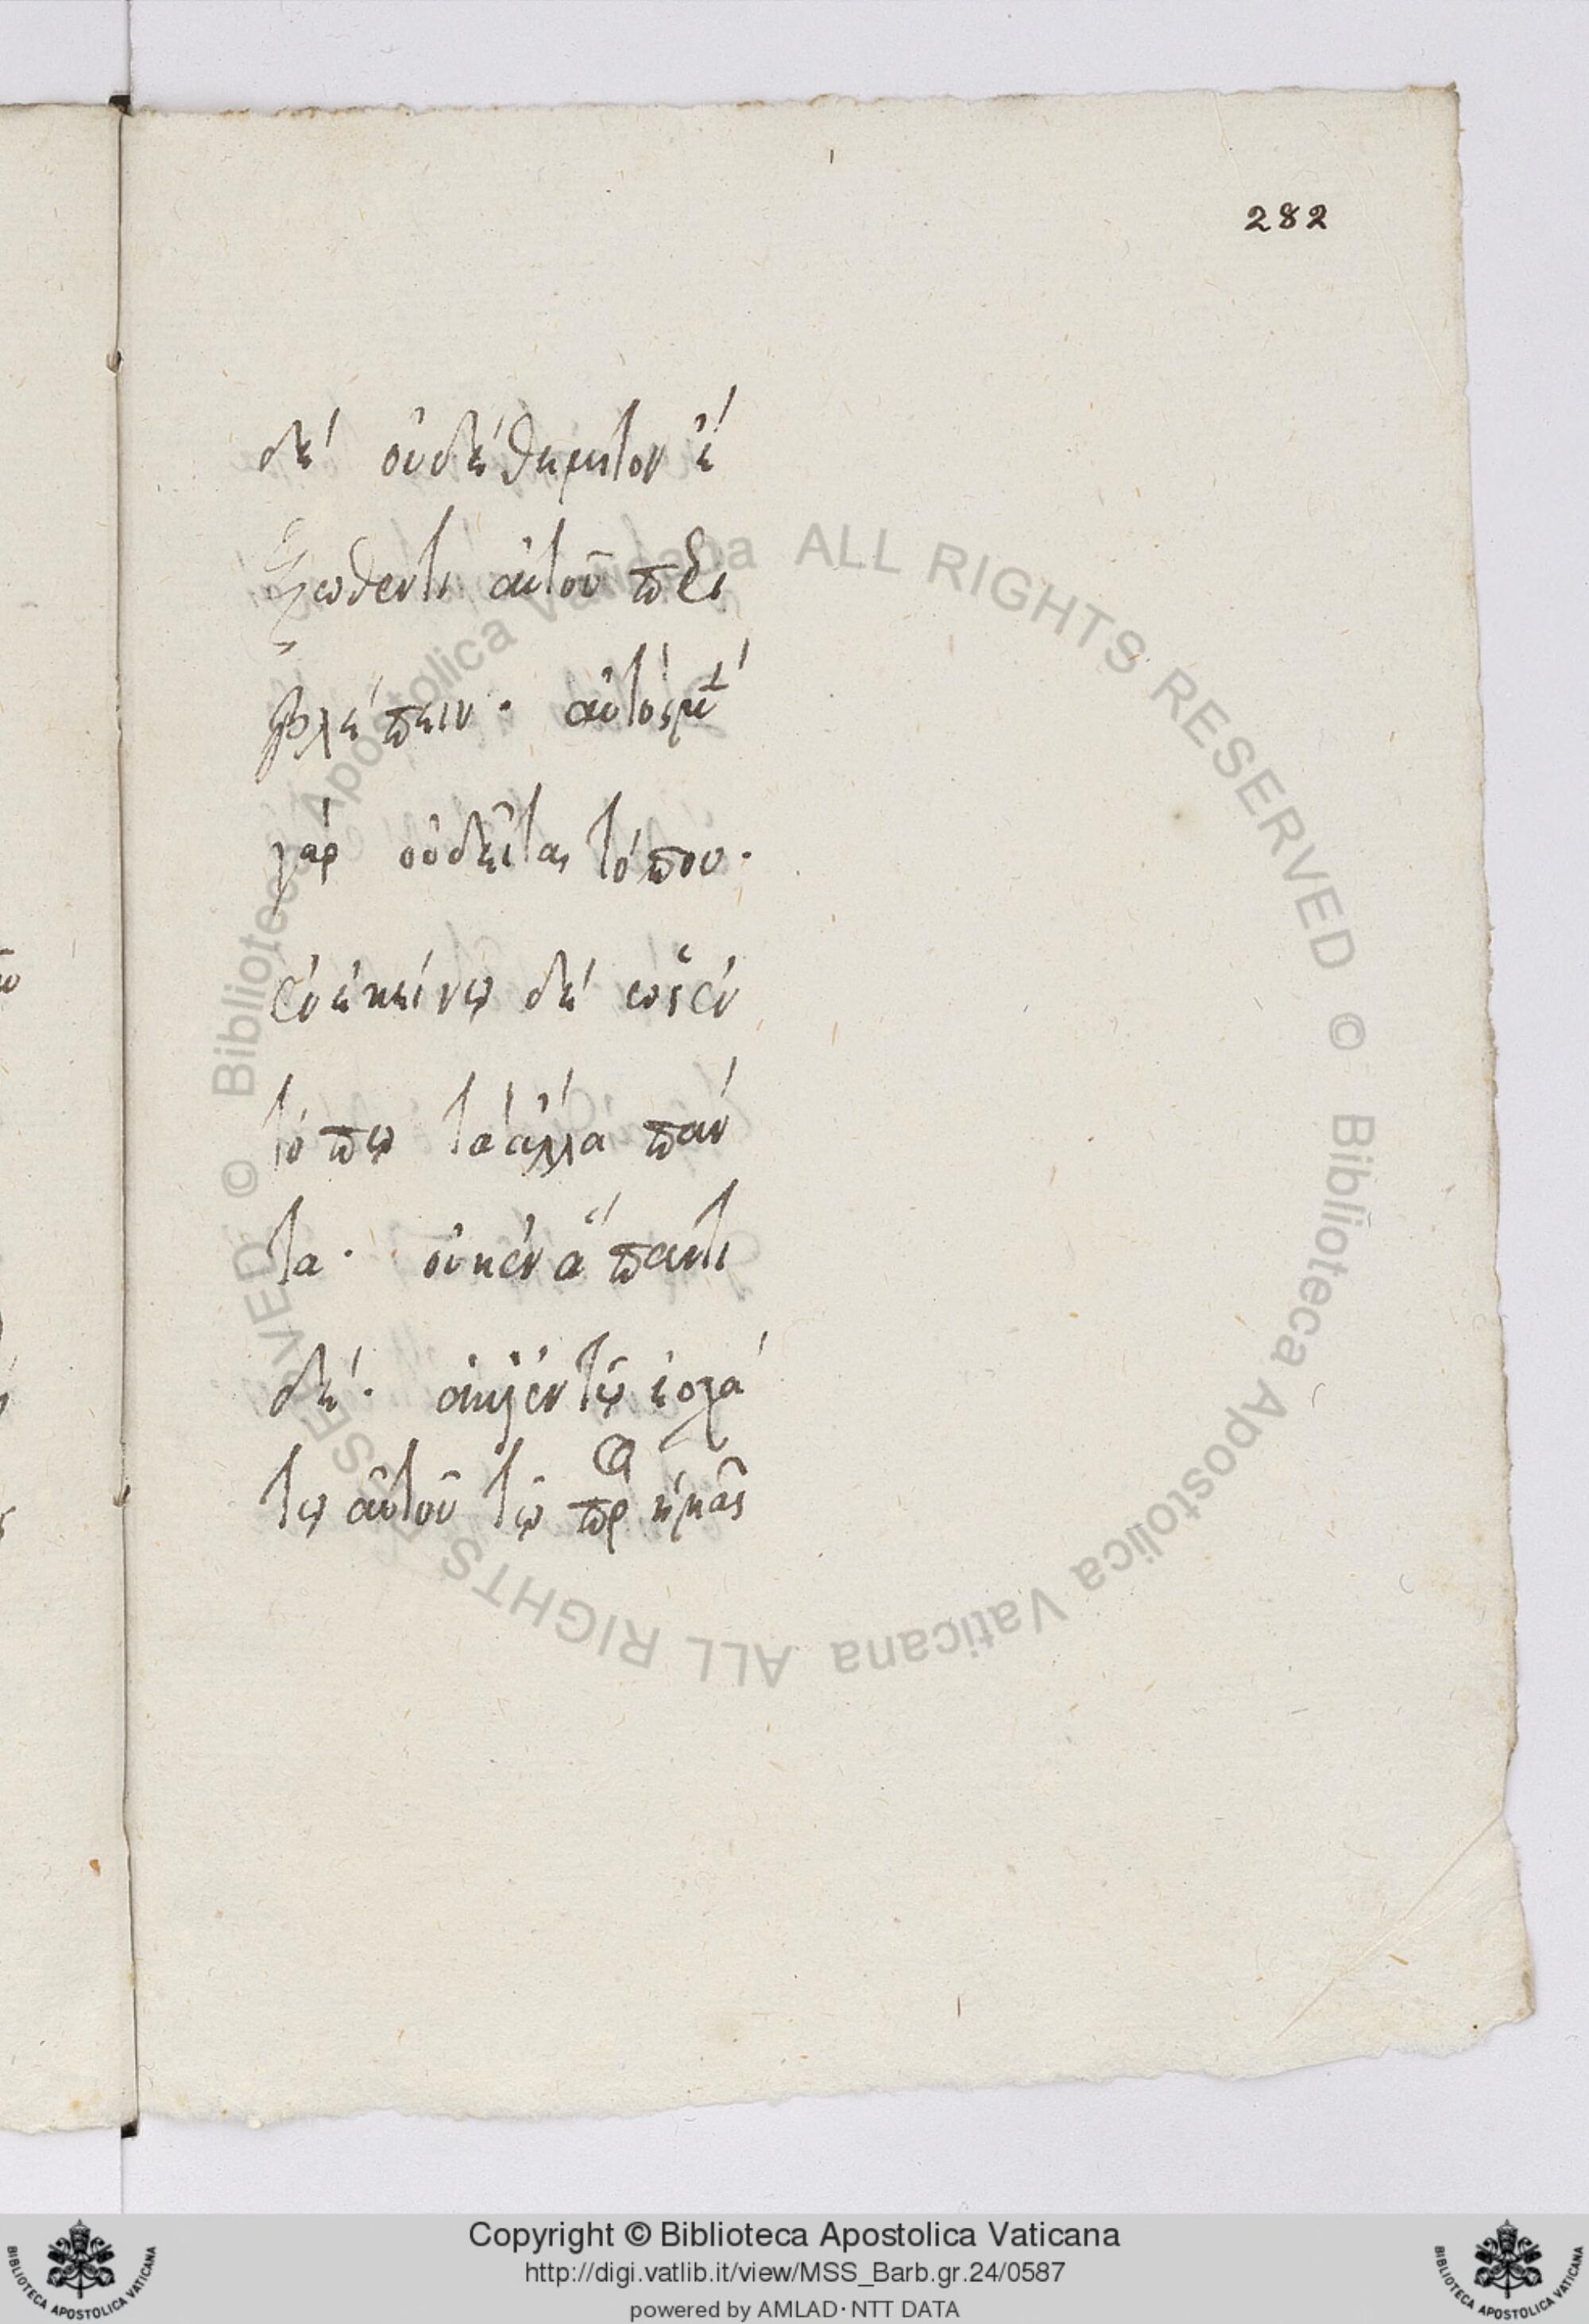 282
δέ οὐδέ θεμιτὸν ἔ
ξωθεν τι αὐτοῦ περι
βλέπειν. αὐτὸς μὲν
γὰρ οὐδεῖται τόπου.
ἐν ἐκείνῳ δέ ὡς ἐν
τόπῳ τὰ ἄλλα πάν
τα. οὐκ ἐν ἅπαντι
δέ. ἀλλ' ἐν τῷ ἐσχά
τῳ αὐτοῦ τῷ πρ ἡμᾶς
© Biblioteca Apostolica Vaticana ALL RIGHTS RESERVED © Biblioteca Apostolica Vaticana ALL RIGHTS RESERVED
Copyright © Biblioteca Apostolica Vaticana
http://digi.vatlib.it/view/MSS_Barb.gr.24/0587
powered by AMLAD·NTT DATA
BIBLIOTECA APOSTOLICA VATICANA
BIBLIOTECA APOSTOLICA VATICANA